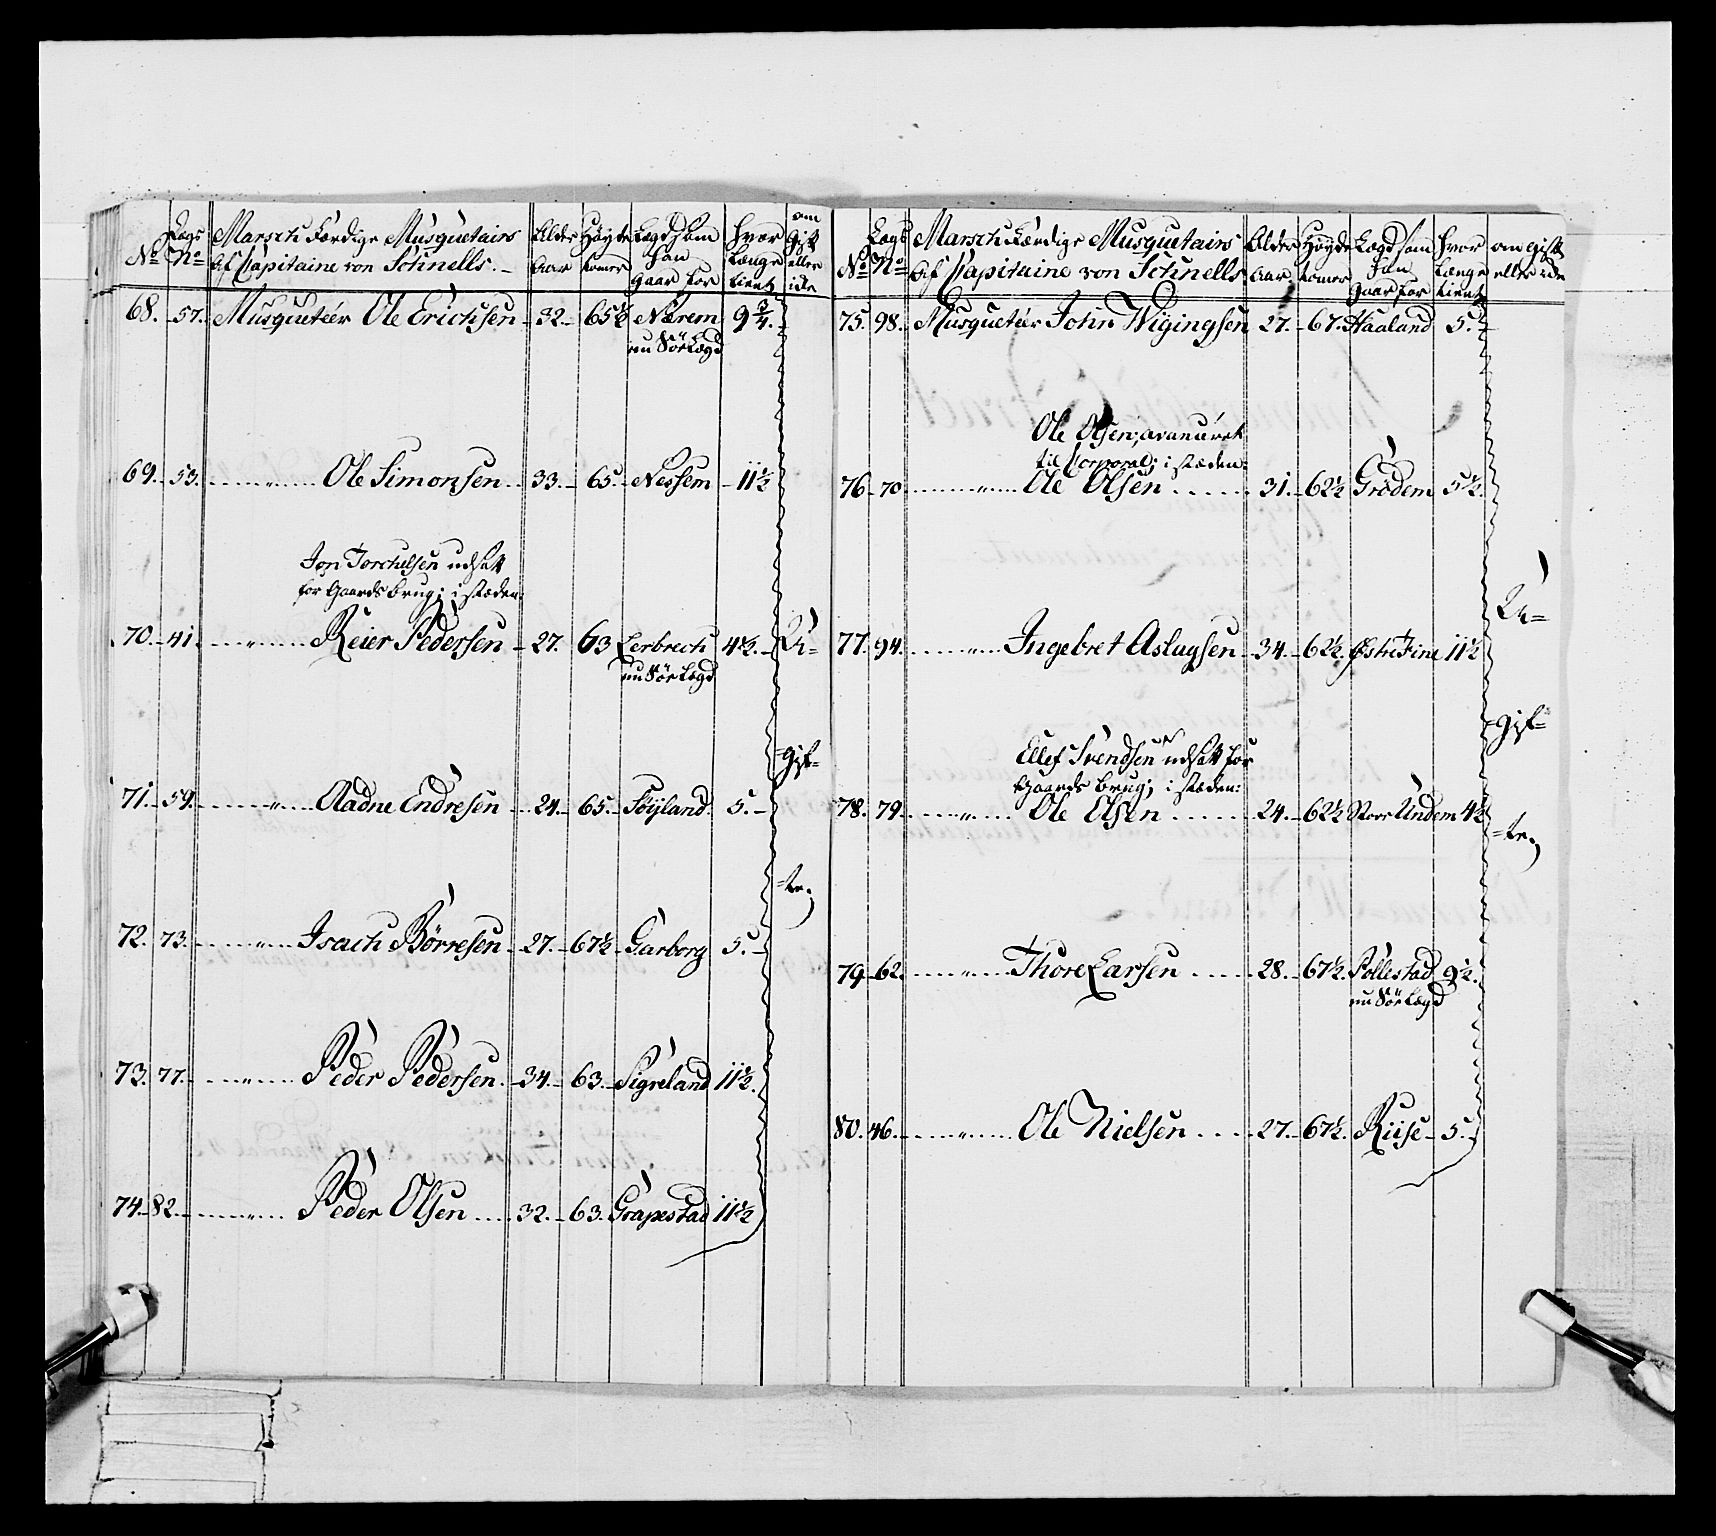 No Lægs No Marsch Færdige Musquetairs Af Capitaine von Schnells. Alder Aar Høyde tomer Lægd som han gaar for hvor længe tient om gift eller icke
68. 57. Musqueteer Ole Erichsen 32. 65½ Nærem 9¾.
nu Sör Lægd
69. 53. " Ole Simonsen 33. 65. Nessem 11½
Jon Torchelsen udsatt
for Gaards brug; i stæden:
70. 41. " Reier Pedersen 27. 63 Lerbrech 4½. U=
nu Sör Lægd
gif=
71. 59. " Aadne Endresen 24. 65. Föyland. 5.
=te;
72. 73. " Isach Börresen 27. 67½ Garborg 5.
73. 77. " Peder Pedersen. 34. 63. Sigreland 11½.
74. 82. " Peder Olsen 32. 63. Grapestad 11½
No Lægs No Marsch Færdige Musquetairs Af Capitaine von Schnells. Alder Aar Høyde tomer Lægd som han gaar for hvor længe tient om gift eller icke
75. 98. Musqueteer John Wigingsen 27. 67. Haaland 5.
Ole Olsen; avanceret
til Corporal; i stæden:
76. 70 " Ole Olsen 31. 62½ Grödem 5½.
U=
77. 94. " Ingebret Aslagsen 34. 62½. Østre Fine 11½
gif=
Ellef Svendsen udsatt for
Gaards brug; i stæden:
78. 79. " Ole Olsen 24. 62½ Store Undem 4½
=te;
79. 62. " Thore Larsen 28. 67½. Pollestad 9½.
nu Sör Lægd
80. 46. " Ole Nielsen 27. 67½. Riise 5.